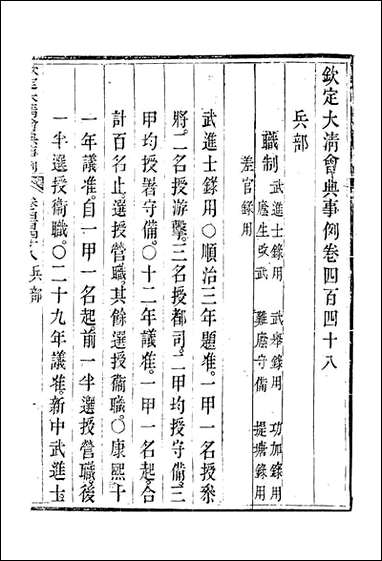 欽定大清會典事例卷四百四十八
兵部
職制 武進士錄用 武舉錄用 功加錄用
廕生改武 難廕守備 提塘錄用
差官錄用
武進士錄用○順治三年題准。一甲一名授叅
將。二名授游擊。三名授都司。二甲均授守備。三
甲均授署守備。○十二年議准。一甲一名起。合
計百名止。選授營職。其餘選授衞職。○康熙十
一年議准。自一甲一名起。前一半選授營職。後
一半選授衞職。○二十九年議准。新中武進士
大清會典事例 八 兵部